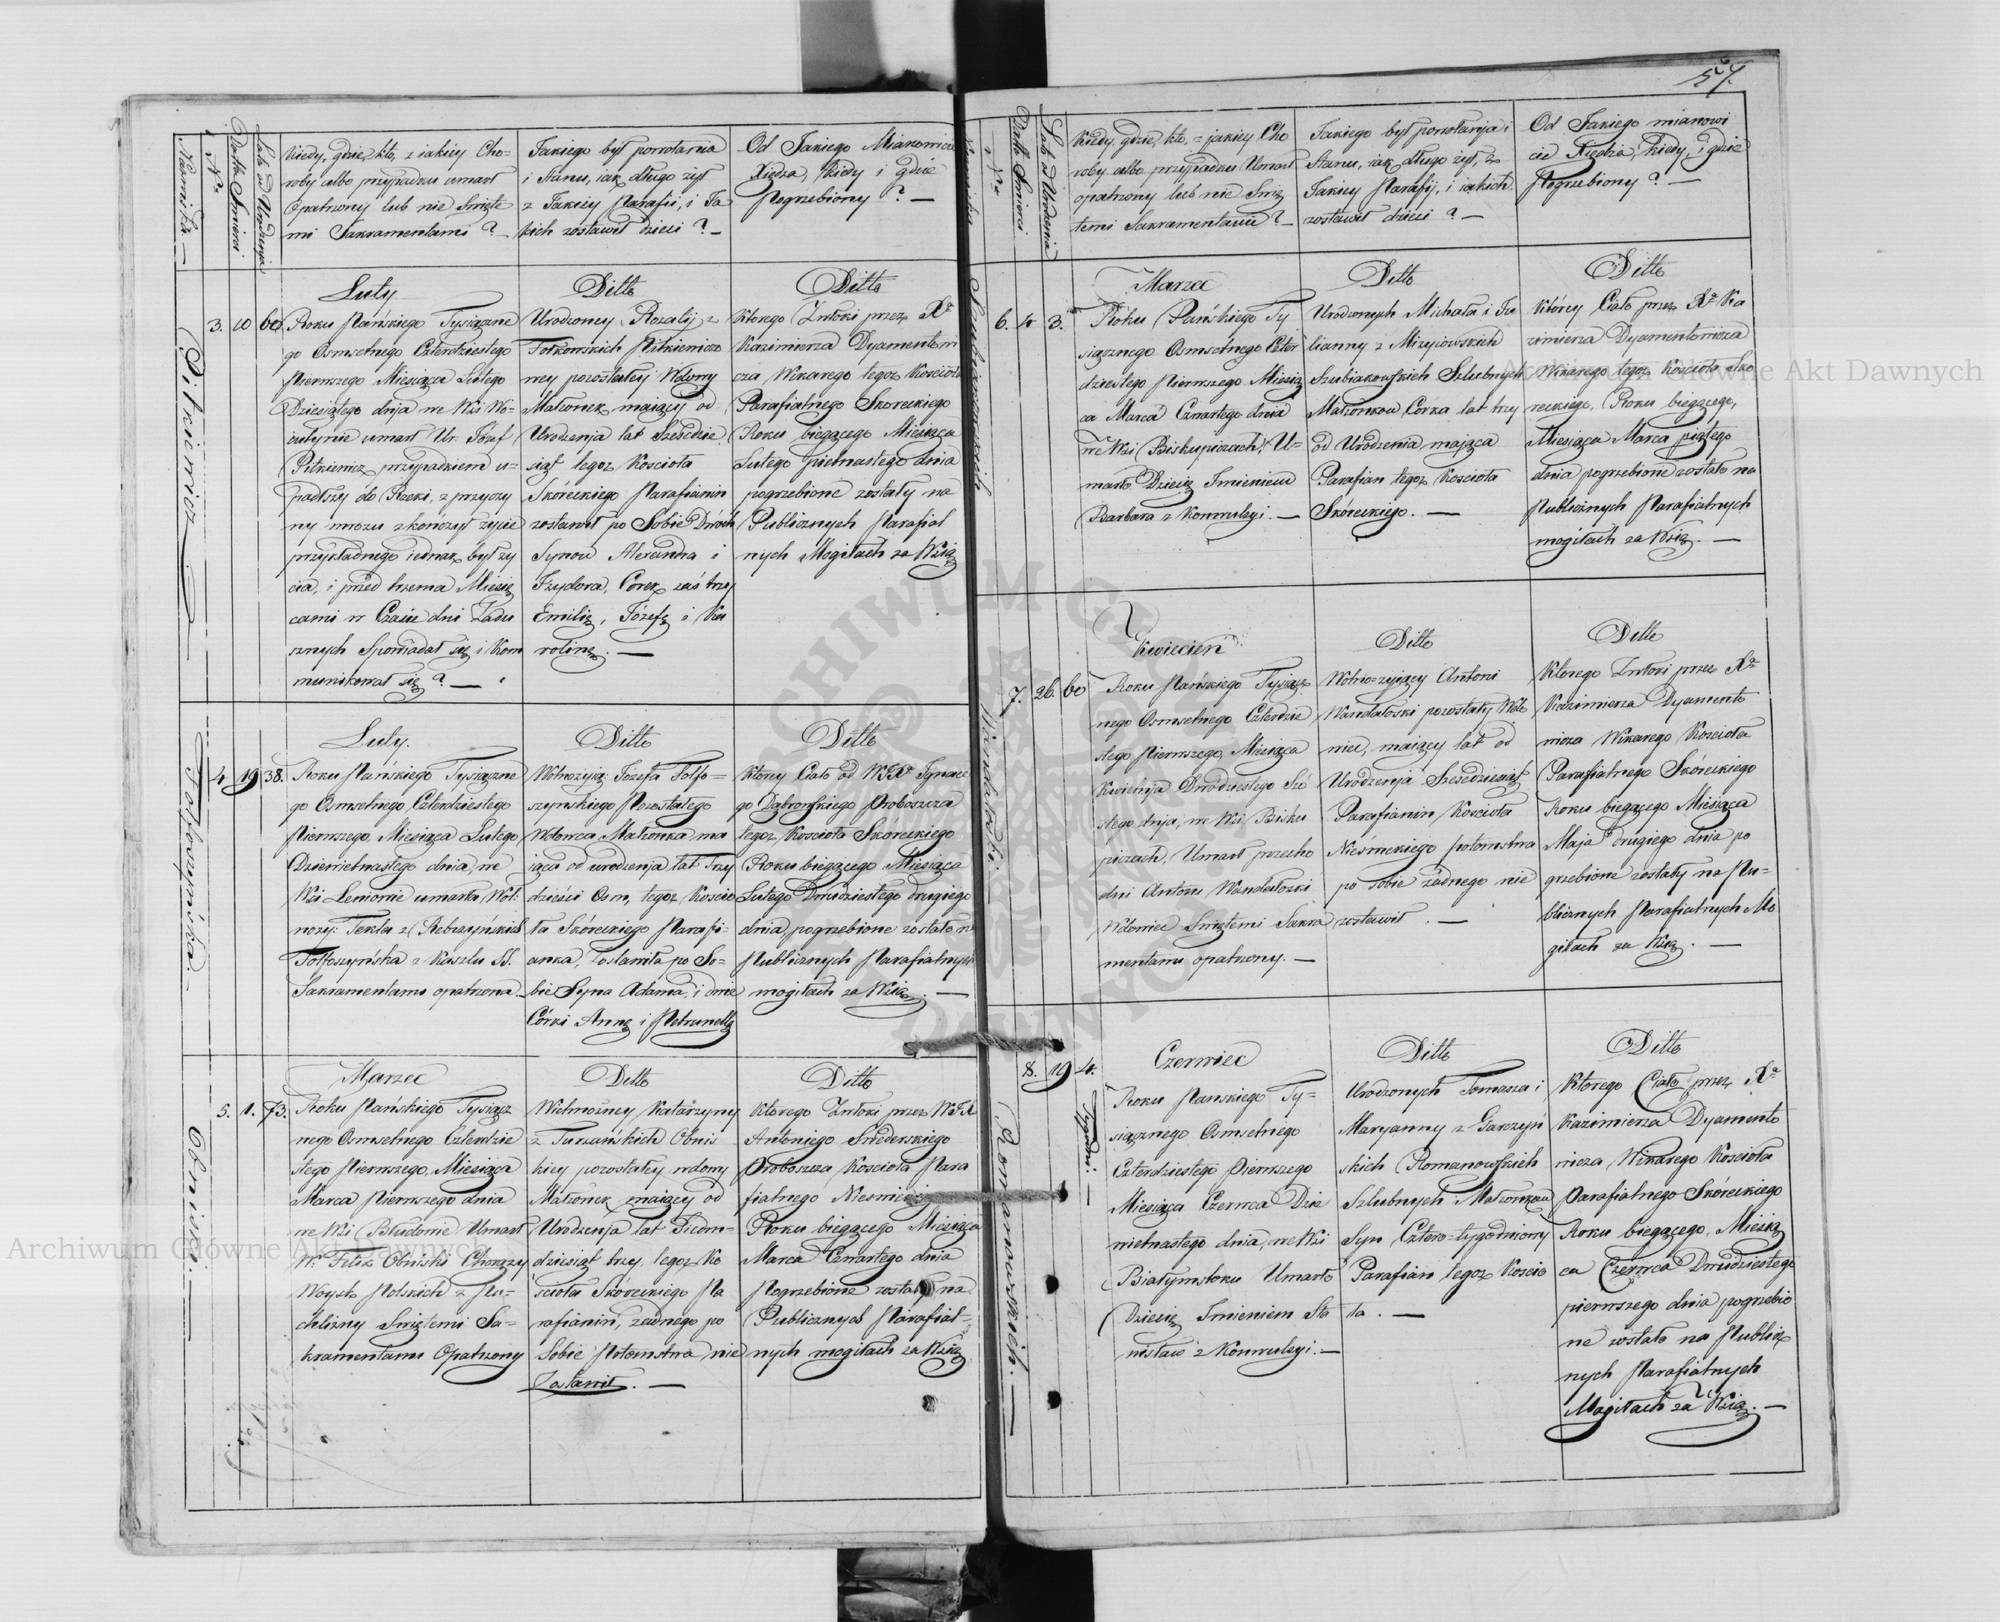 57.
Nazwiska
Nro
Datta Smierci
Lata od Urodzenia
Kiedy, gdzie, kto, z iakiey Cho-
roby albo przypadku umarł
Opatrzony lub nie Swięte
mi Sakramentami? —
Jakiego był powołania
i Stanu, iak długo żył
z Jakiey Parafii, i Ja
kich zostawił dzieci? —
Od Jakiego Mianowicie
Xiędza, kiedy i gdzie
Pogrzebiony? —
Pitkiewicz
3. 10 60
Luty
Roku Pańskiego Tysiączne
go Osmsetnego Czterdziestego
Pierwszego Miesiąca Lutego
Dziesiątego dnia we Wsi
umarł Ur: Józef
Pitkiewicz przypadkiem u-
padłszy do Rzeki, z przyczy
ny mrozu zkończył życie
przykładnego iednak był ży
cia, i przed trzema Miesią
cami w Czasie dni Zadu
sznych Spowiadał się i Kom
munikował się? —
Ditto
Urodzoney Rozalij z
Pitkiewiczo
wey pozostałey Wdowy
Małżonek maiący od
Urodzenia lat Sześćdzie
siąt tegoż Kościoła
Skóreckiego Parafianin
zostawił po Sobie Dwóch
Synow Alexandra i
Izydora, Córek zaś trzy
Emilię, Józefę i Ka
rolinę. —
Ditto
Ktorego Zwłoki przez Xa
Kazimierza Dyamentowi
cza Wikarego tegoż Kościoła
Parafialnego Skoreckiego
Roku biegącego Miesiąca
Lutego pietnastego dnia
pogrzebione zostały na
Publicznych Parafial
nych Mogiłach za Wsią
Tołłoczyńska
4 19 38.
Luty.
Roku Pańskiego Tysiączne
go Osmsetnego Czterdziestego
Pierwszego, Miesiąca Lutego
Dziewietnastego dnia, we
Wsi Lemonie umarła, Wol:
Tekla z
z Kaszlu SS.
Sakramentami opatrzona. —
Ditto
Jozefa
Pozostałego
Wdowca Małżonka ma
iąca od urodzenia lat Trzy
dzieści Osm, tegoż Koscio
ła Skóreckiego Parafi-
anka, Zostawiła po So-
bie Syna Adama, i dwie
Córki Annę i Petrunellę
Ditto
Ktorey Ciało od WJXa Ignace
go Dąbrowskiego Proboszcza
tegoż Kościoła Skoreckiego
Roku biegącego Miesiąca
Lutego Dwudziestego drugiego
dnia, pogrzebione zostało n
Publicznych Parafialnych
mogiłach za Wsią. —
Obniski
5. 1. 73.
Marzec
Roku Pańskiego Tysiącz
nego Osmsetnego Czterdzie
stego Pierwszego, Miesiąca
Marca pierwszego dnia
we Wsi Błudenie Umarł
W. Felix Obniski Chorąży
Woysk Polskich z Pu-
chliny Swiętemi Sa-
kramentami Opatrzony
Ditto
Wielmożney Katarzyny
z Obnis
kiey pozostałey wdowy
Małżonek maiący od
Urodzenia lat Siedm-
dziesiąt trzy, tegoż Ko
ścioła Skóreckiego Pa
rafianin, żadnego po
Sobie Potomstwa nie
Zostawił. —
Ditto
Ktorego Zwłoki przez WJX
Antoniego Swederskiego
Proboszcza Kosciola Para
fialnego
Roku biegącego Miesiąca
Marca Czwartego dnia
Pogrzebione zostały na
Publicznych Parafial-
nych mogiłach za Wsią
Nazwiska
Nro
Datta Smierci
Lata od Urodzenia
Kiedy, gdzie, kto, z jakiey Cho
roby albo przypadku Umarł
opatrzony lub nie Swię
temi Sakramentami? —
Jakiego był powołania i
Stanu, iak długo żył, z
Jakiey Parafij, i iakich
zostawił dzieci? —
Od Jakiego mianowi
cie Xiędza, kiedy, i gdzie
Pogrzebiony? —
Szubiakowskich
6. 4 3.
Marzec
Roku Pańskiego Ty
siącznego Osmsetnego Czter
dziestego Pierwszego Miesią
ca Marca Czwartego dnia
we Wsi Biskupiczach, U-
marło Dziecię Imieniem
Barbara z Konwulzyi. —
Ditto
Urodzonych Michała i Ju
lianny z
Szubiakowskich Szlubnych
Małżonkow Córka lat trzy
od Urodzenia mająca
Parafian tegoż Kościoła
Skóreckiego. —
Ditto
Którey Ciało przez Xa Ka
zimierza Dyamentowicza
Wikarego tegoż Kościoła Sko
reckiego, Roku biegącego,
Miesiąca Marca piątego
dnia pogrzebione zostało na
Publicznych Parafialnych
mogiłach za Wsią. —
Wandałoski
7. 26. 60
Kwiecień
Roku Pańskiego Tysiącz
nego Osmsetnego Czterdzie
stego Pierwszego, Miesiąca
Kwietnia Dwódziestego Szó
stego dnia, we Wsi Bisku
piczach, Umarł
Antoni Wandałoski
Wdowiec Swiętemi Sakra
mentami opatrzony. —
Ditto
Antoni
Wandałoski pozostały Wdo
wiec, maiący lat od
Urodzenia Sześćdziesiąt
Parafianin Kościoła
potomstwa
po sobie żadnego nie
zostawił. —
Ditto
Ktorego Zwłoki przez Xa
Kazimierza Dyamento
wicza Wikarego Kościoła
Parafialnego Skóreckiego
Roku biegącego Miesiąca
Maja drugiego dnia po
grzebione zostały na Pu-
blicznych Parafialnych Mo
giłach za Wsią. —
Romanowskich. —
8. 19 4.
Tygodni: —
Czerwiec
Roku Pańskiego Ty-
siącznego Osmsetnego
Czterdziestego Pierwszego
Miesiąca Czerwca Dzie
wietnastego dnia, we Wsi
Białymstoku Umarło
Dziecię Imieniem Sta
nisław z Konwulzyi. —
Ditto
Urodzonych Tomasza i
Maryanny z Garczyń
skich Romanowskich
Szlubnych Małżonków
Syn Cztero-tygodniowy
Parafian tegoż Koscio
ła. —
Ditto
Ktorego Ciało przez Xa
Kazimierza Dyamento
wicza Wikarego Kościoła
Parafialnego Skóreckiego
Roku biegącego, Miesią
ca Czerwca Dwudziestego
pierwszego dnia pogrzebio
ne zostało na Publicz
nych Parafialnych
Mogiłach za Wsią. —
Archiwum Główne Akt Dawnych
Archiwum Główne Akt Dawnych